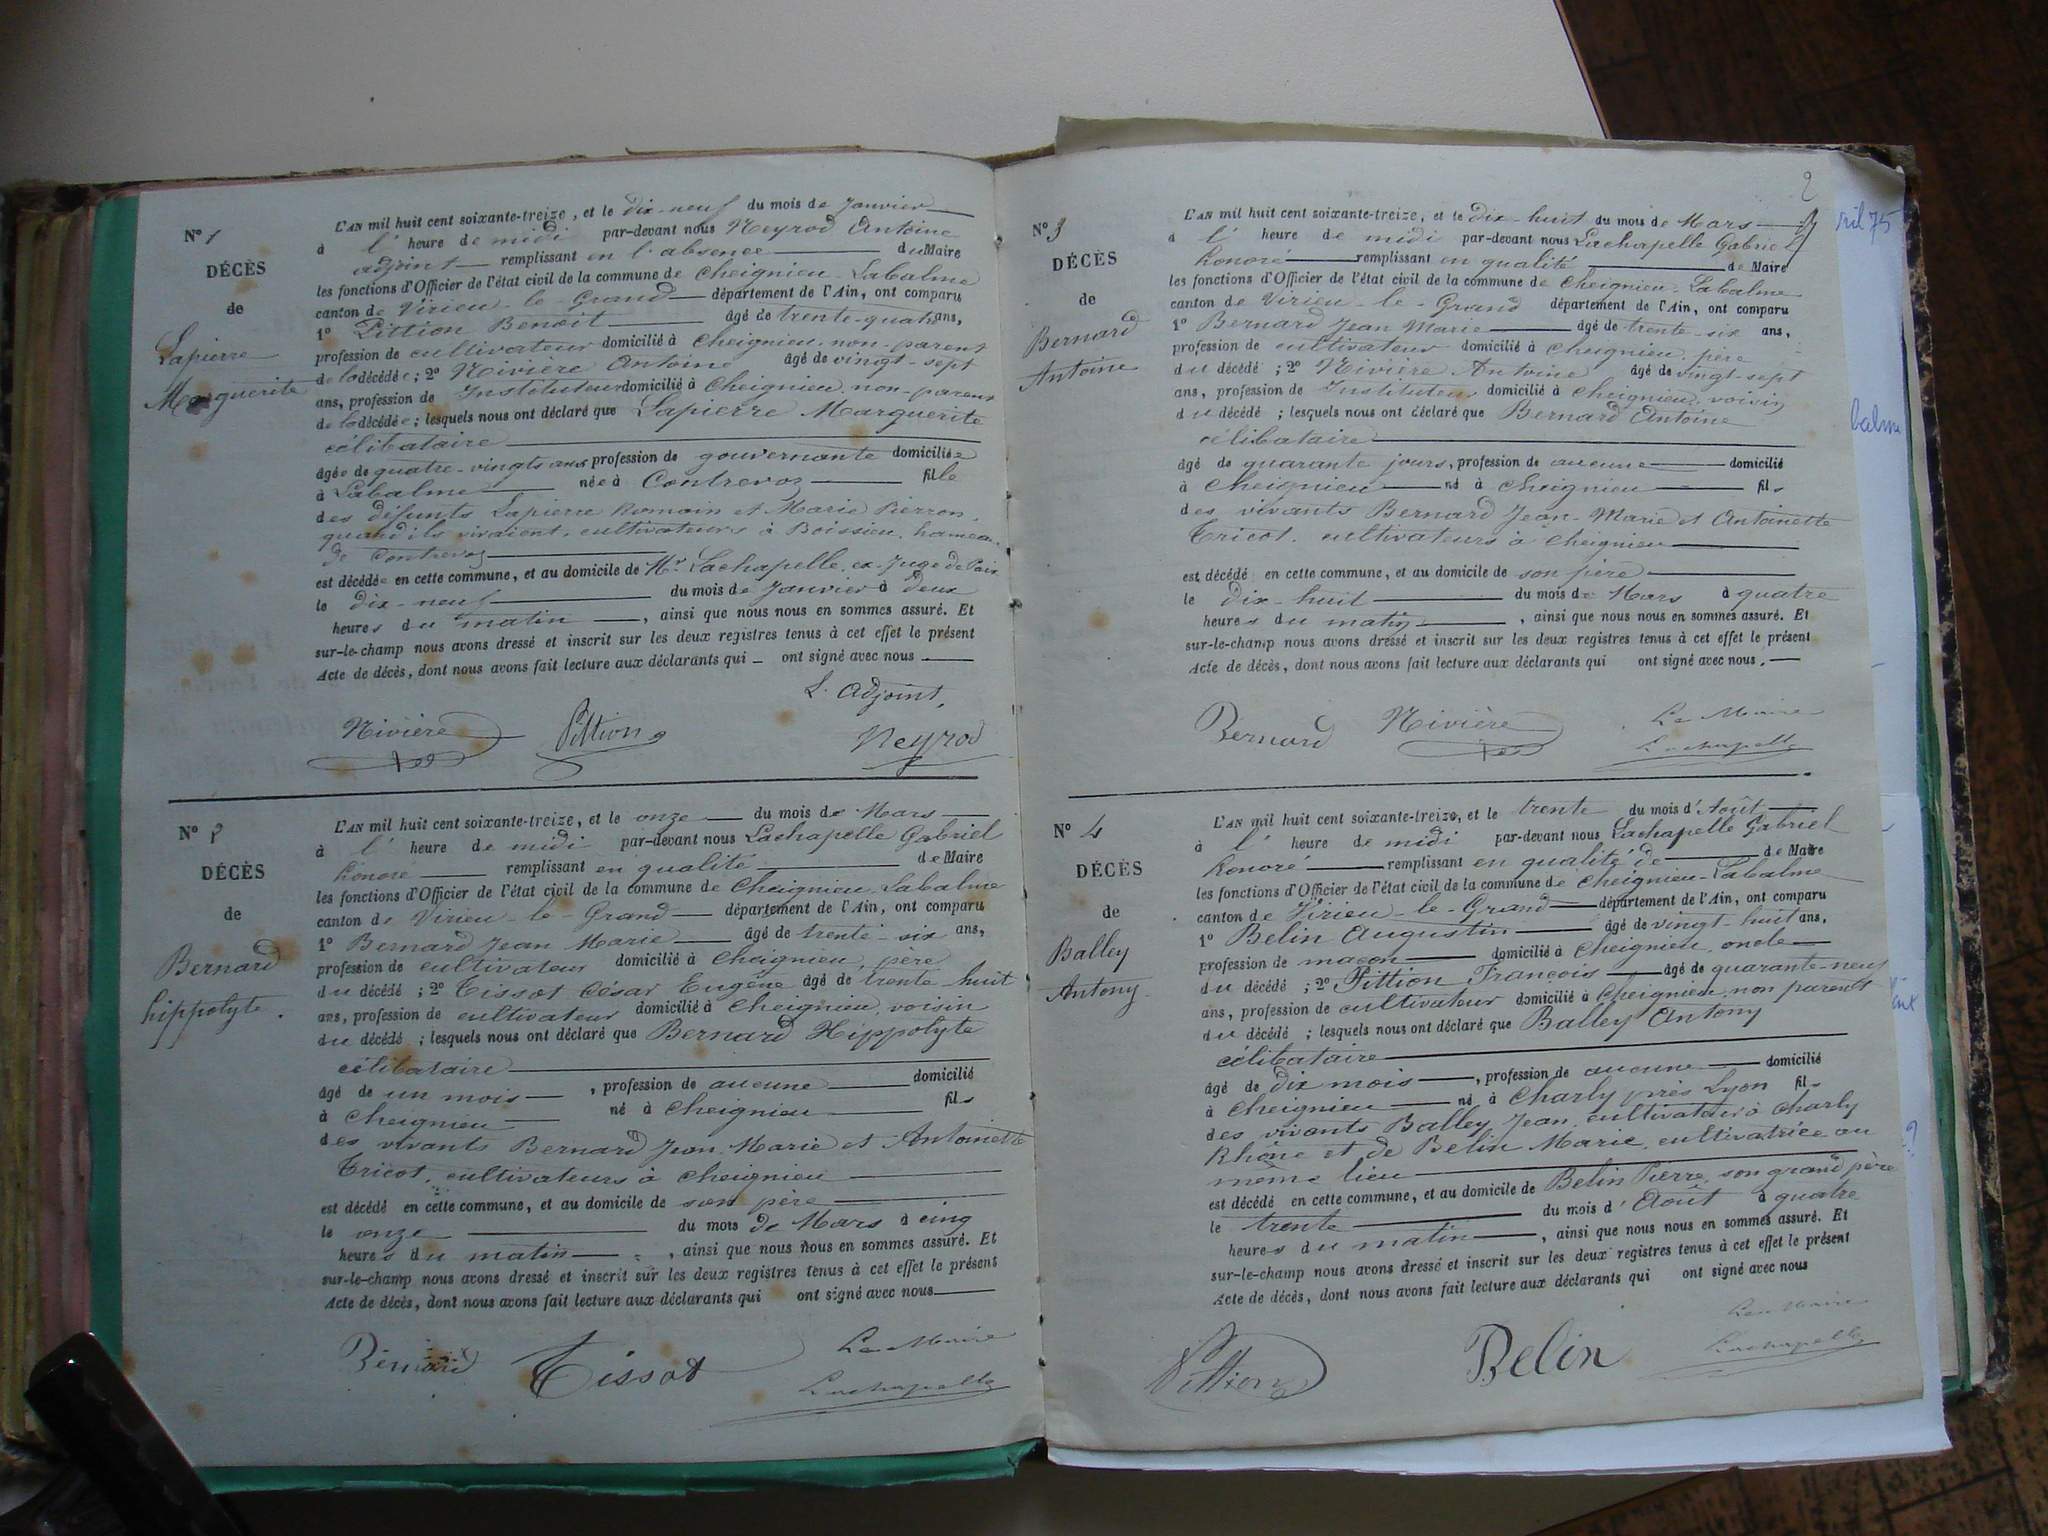 N° 1
DÉCÈS
de
Lapierre
Marguerite
L'AN mil huit cent soixante-treize, et le dix-neuf du mois de Janvier
à l' heure de midi par-devant nous Neyrod Antoine
adjoint remplissant en l'absence du Maire
les fonctions d'Officier de l'état civil de la commune de Cheignieu-Labalme
canton de Virieu-le-Grand département de l'Ain, ont comparu
1° Pittion Benoit âgé de trente-quatre ans,
profession de cultivateur domicilié à Cheignieu, non-parent
de la décédée ; 2° Nivière Antoine âgé de vingt-sept
ans, profession de Instituteur domicilié à Cheignieu, non-parent
de la décédée ; lesquels nous ont déclaré que Lapierre Marguerite
célibataire
âgée de quatre-vingts ans profession de gouvernante domiciliée
à Labalme née à Contrevoz fille
des défunts Lapierre Romain et Marie Pierron,
quand ils vivaient, cultivateurs à Boissieu, hameau
de Contrevoz
est décédée en cette commune, et au domicile de Mr Lachapelle, ex-Juge de Paix
le dix-neuf du mois de Janvier à deux
heures du matin, ainsi que nous nous en sommes assuré. Et
sur-le-champ nous avons dressé et inscrit sur les deux registres tenus à cet effet le présent
Acte de décès, dont nous avons fait lecture aux déclarants qui ont signé avec nous.
L'adjoint,
Nivière Pittion Neyrod
N° 2
DÉCÈS
de
Bernard
hippolyte.
L'AN mil huit cent soixante-treize, et le onze du mois de Mars
à l' heure de midi par-devant nous Lachapelle Gabriel
honoré remplissant en qualité de Maire
les fonctions d'Officier de l'état civil de la commune de Cheignieu-Labalme
canton de Virieu-le-Grand département de l'Ain, ont comparu
1° Bernard Jean Marie âgé de trente-six ans,
profession de cultivateur domicilié à Cheignieu, père
du décédé ; 2° Tissot César Eugène âgé de trente-huit
ans, profession de cultivateur domicilié à Cheignieu, voisin
du décédé ; lesquels nous ont déclaré que Bernard Hippolyte
célibataire
âgé de un mois, profession de aucune domicilié
à Cheignieu né à Cheignieu fils
des vivants Bernard Jean-Marie et Antoinette
Tricot, cultivateurs à Cheignieu
est décédé en cette commune, et au domicile de son père
le onze du mois de Mars à cinq
heures du matin, ainsi que nous nous en sommes assuré. Et
sur-le-champ nous avons dressé et inscrit sur les deux registres tenus à cet effet le présent
Acte de décès, dont nous avons fait lecture aux déclarants qui ont signé avec nous
Le Maire
Bernard Tissot Lachapelle
2
N° 3
DÉCÈS
de
Bernard
Antoine
L'AN mil huit cent soixante-treize, et le dix-huit du mois de Mars
à l' heure de midi par-devant nous Lachapelle Gabriel
honoré remplissant en qualité de Maire
les fonctions d'Officier de l'état civil de la commune de Cheignieu-Labalme
canton de Virieu-le-Grand département de l'Ain, ont comparu
1° Bernard Jean Marie âgé de trente-six ans,
profession de cultivateur domicilié à Cheignieu, père
du décédé ; 2° Nivière Antoine âgé de vingt-sept
ans, profession de Instituteur domicilié à Cheignieu, voisin
du décédé ; lesquels nous ont déclaré que Bernard Antoine
célibataire
âgé de quarante jours, profession de aucune domicilié
à Cheignieu né à Cheignieu fils
des vivants Bernard Jean-Marie et Antoinette
Tricot, cultivateurs à Cheignieu
est décédé en cette commune, et au domicile de son père
le dix-huit du mois de Mars à quatre
heures du matin, ainsi que nous nous en sommes assuré. Et
sur-le-champ nous avons dressé et inscrit sur les deux registres tenus à cet effet le présent
Acte de décès, dont nous avons fait lecture aux déclarants qui ont signé avec nous.
Le Maire
Bernard Nivière Lachapelle
N° 4
DÉCÈS
de
Balley
Antony
L'AN mil huit cent soixante-treize, et le trente du mois d'Août
à l' heure de midi par-devant nous Lachapelle Gabriel
honoré remplissant en qualité de de Maire
les fonctions d'Officier de l'état civil de la commune de Cheignieu-Labalme
canton de Virieu-le-Grand département de l'Ain, ont comparu
1° Belin Augustin âgé de vingt-huit ans,
profession de maçon domicilié à Cheignieu, oncle
du décédé ; 2° Pittion François âgé de quarante-neuf
ans, profession de cultivateur domicilié à Cheignieu, non parent
du décédé ; lesquels nous ont déclaré que Balley Antony
célibataire
âgé de dix mois, profession de aucune domicilié
à Cheignieu né à Charly près Lyon fils
des vivants Balley Jean, cultivateur à Charly
Rhône et de Belin Marie, cultivatrice au
même lieu
est décédé en cette commune, et au domicile de Belin Pierre, son grand père
le trente du mois d'Août à quatre
heures du matin, ainsi que nous nous en sommes assuré. Et
sur-le-champ nous avons dressé et inscrit sur les deux registres tenus à cet effet le présent
Acte de décès, dont nous avons fait lecture aux déclarants qui ont signé avec nous
Le Maire
Pittion Belin Lachapelle
ril 75
balme
?